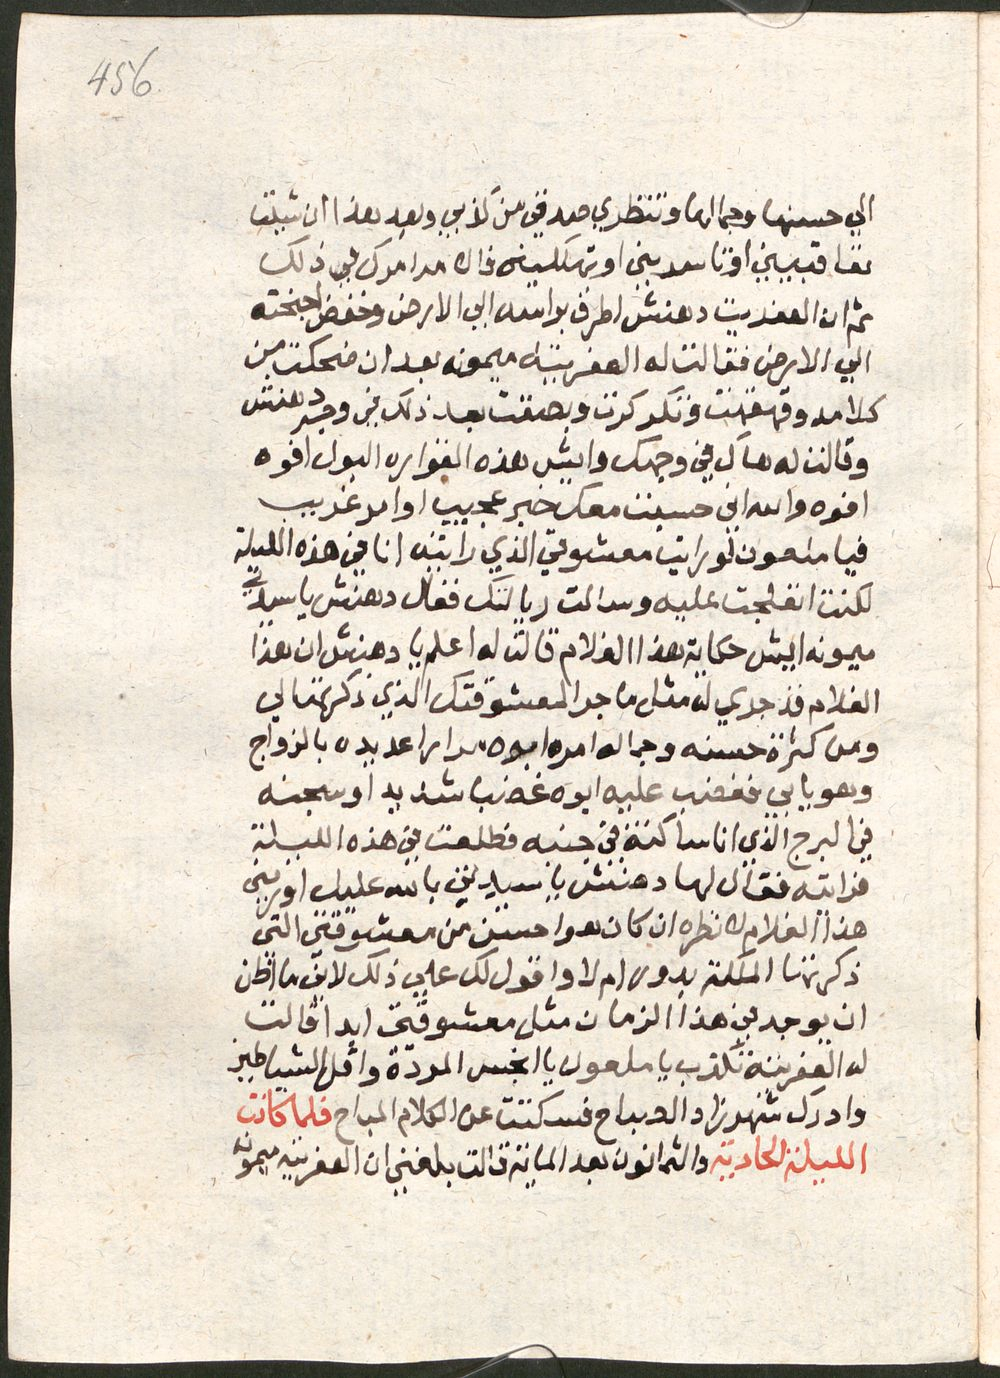 456
الي حسنها وجمالها وتنظري صدقي من كذبي وبعد هذا ان شيتي
تعاقبيني او تاسريني او تهلكيني فالامر امرك في ذلك
ثم ان العفريت دهنش اطرق براسه الي الارض وخفض اجنحته
الي الارض فقالت له العفريته ميمونه بعد ان ضحكت من
كلامه وقهقهت وتكركرت وبصقت بعد ذلك في وجه دهنش
وقالت له هاك في وجهك وايش هذه الفواره البول افوه
افوه والله اني حسبت معك خبر عجيب او امر غريب
فيا ملعون لو رايت معشوقي الذي رايته انا في هذه الليلة
لكنت انفلجت عليه وسالت ريالتك فقال دهنش يا سيدتي
ميمونه ايش حكاية هذا الغلام قالت له اعلم يا دهنش ان هذا
الغلام قد جري له مثل ما جرا لمعشوقتك الذي ذكرتها لي
ومن كثرة حسنه وجماله امره ابوه مرارا عديده بالزواج
وهو يابي فغضب عليه ابوه غضبا شديد او سجنه
في البرج الذي انا ساكنة في جنبه فطلعت في هذه الليلة
فراته فقال لها دهنش يا سيدتي بالله عليك اوريني
هذا الغلام لانظره ان كان هو احسن من معشوقتي التي
ذكرتها الملكة بدور ام لا واقول لك علي ذلك لاني ما اظن
ان يوجد في هذا الزمان مثل معشوقتي ابدا قالت
له العفريتة تكذب يا ملعون يا انجس المردة واقل الشياطين
وادرك شهرزاد الصباح فسكتت عن الكلام المباح فلما كانت
الليلة الحادية والثمانون بعد الماية قالت بلغني ان العفريته ميمونه